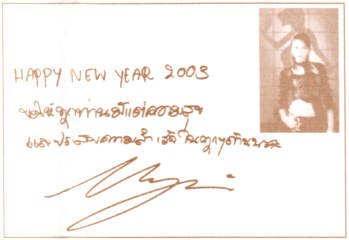 HAPPY NEW YEAR 2003
ขอให้ทุกท่านมีแต่ความสุข
และประสบความสำเร็จในทุกๆด้านนะคะ